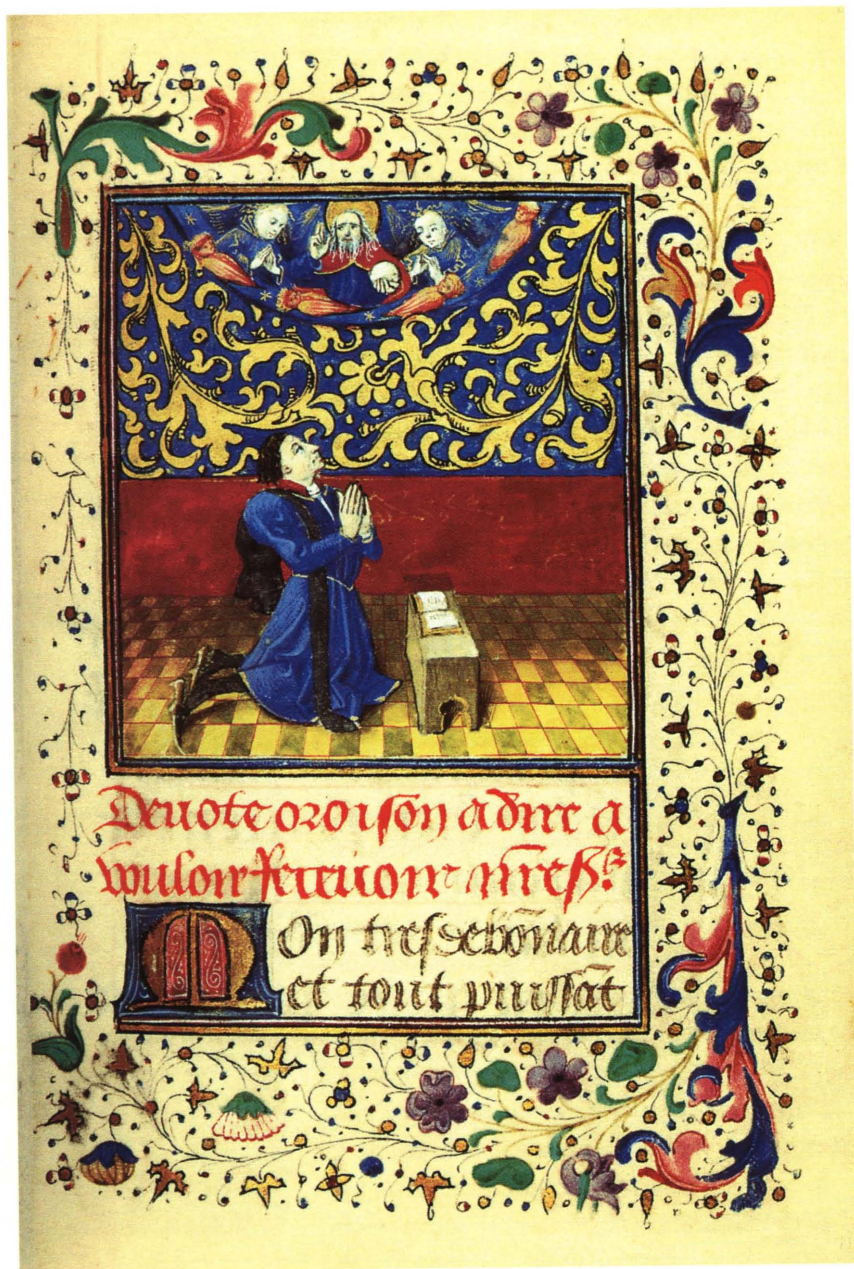 Deuote oroison a dire a
vouloir receuoir nr̄e sr̄
Mon tres debōnaire
et tout puissāt